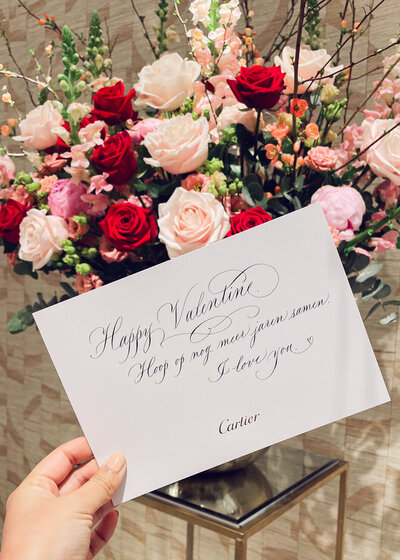 Happy Valentine.
Hoop op nog meer jaren samen.
I love you.
Cartier